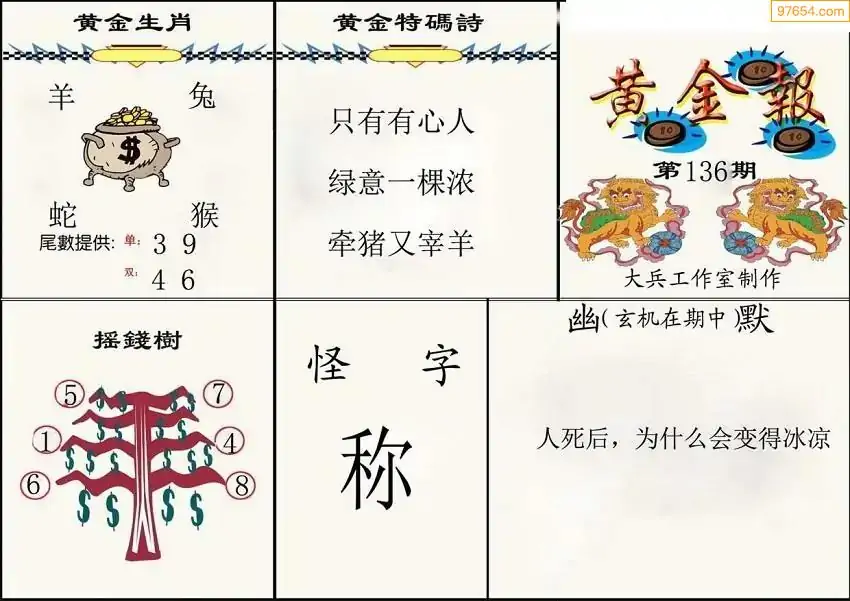 97654.com
黄金生肖
羊 兔
$
蛇 猴
尾數提供: 单: 3 9
双: 4 6
黄金特碼詩
只有有心人
绿意一棵浓
牵猪又宰羊
黄金報
10
10
10
第136期
大兵工作室制作
摇錢樹
5 7
1 4
6 8
怪 字
称
幽(玄机在期中)默
人死后，为什么会变得冰凉